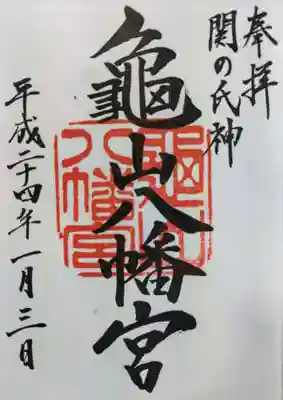 奉拝
関の氏神
龜山八幡宮
平成二十四年一月三日
龜山八幡宮